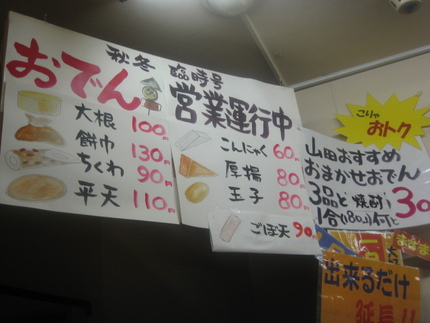 秋冬
おでん
臨時号
営業運行中
大根 100円
餅巾 130円
ちくわ 90円
平天 110円
こんにゃく 60円
厚揚 80円
玉子 80円
ごぼ天 90
こりゃ
おトク
山田おすすめ
おまかせおでん
3品と焼酎
1合(180ml)付
出来るだけ
延長!!